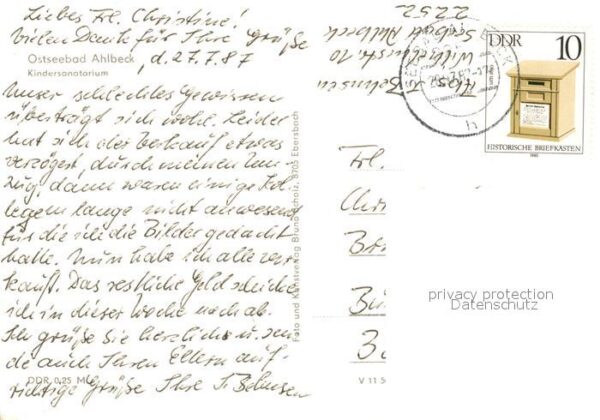 Liebes Frl. Christine!
Vielen Dank für Ihre Grüße
Ostseebad Ahlbeck, d. 27.7.87
Kindersanatorium
Unser schlechtes Gewissen
überträgt sich wohl. Leider
hat sich der Verkauf etwas
verzögert, durch meinen Um-
zug, dann waren einige Kol-
legen lange nicht anwesend
für die ich die Bilder gedacht
hatte. Nun habe ich alle ver-
kauft. Das restliche Geld schicke
ich in dieser Woche noch ab.
Ich grüße Sie herzlichst u. sen-
de auch Ihren Eltern auf-
richtige Grüße Ihre I. Behnsen
DDR 0,25 M
Foto und Kunstverlag Bruno Scholz, 8705 Ebersbach
V 11 5
Behnsen
Wilhelmstr. 10
Seebad Ahlbeck
2252
DDR 10
HISTORISCHE BRIEFKÄSTEN
1985
h
Frl.
Chr
B
Bü
B
privacy protection
Datenschutz